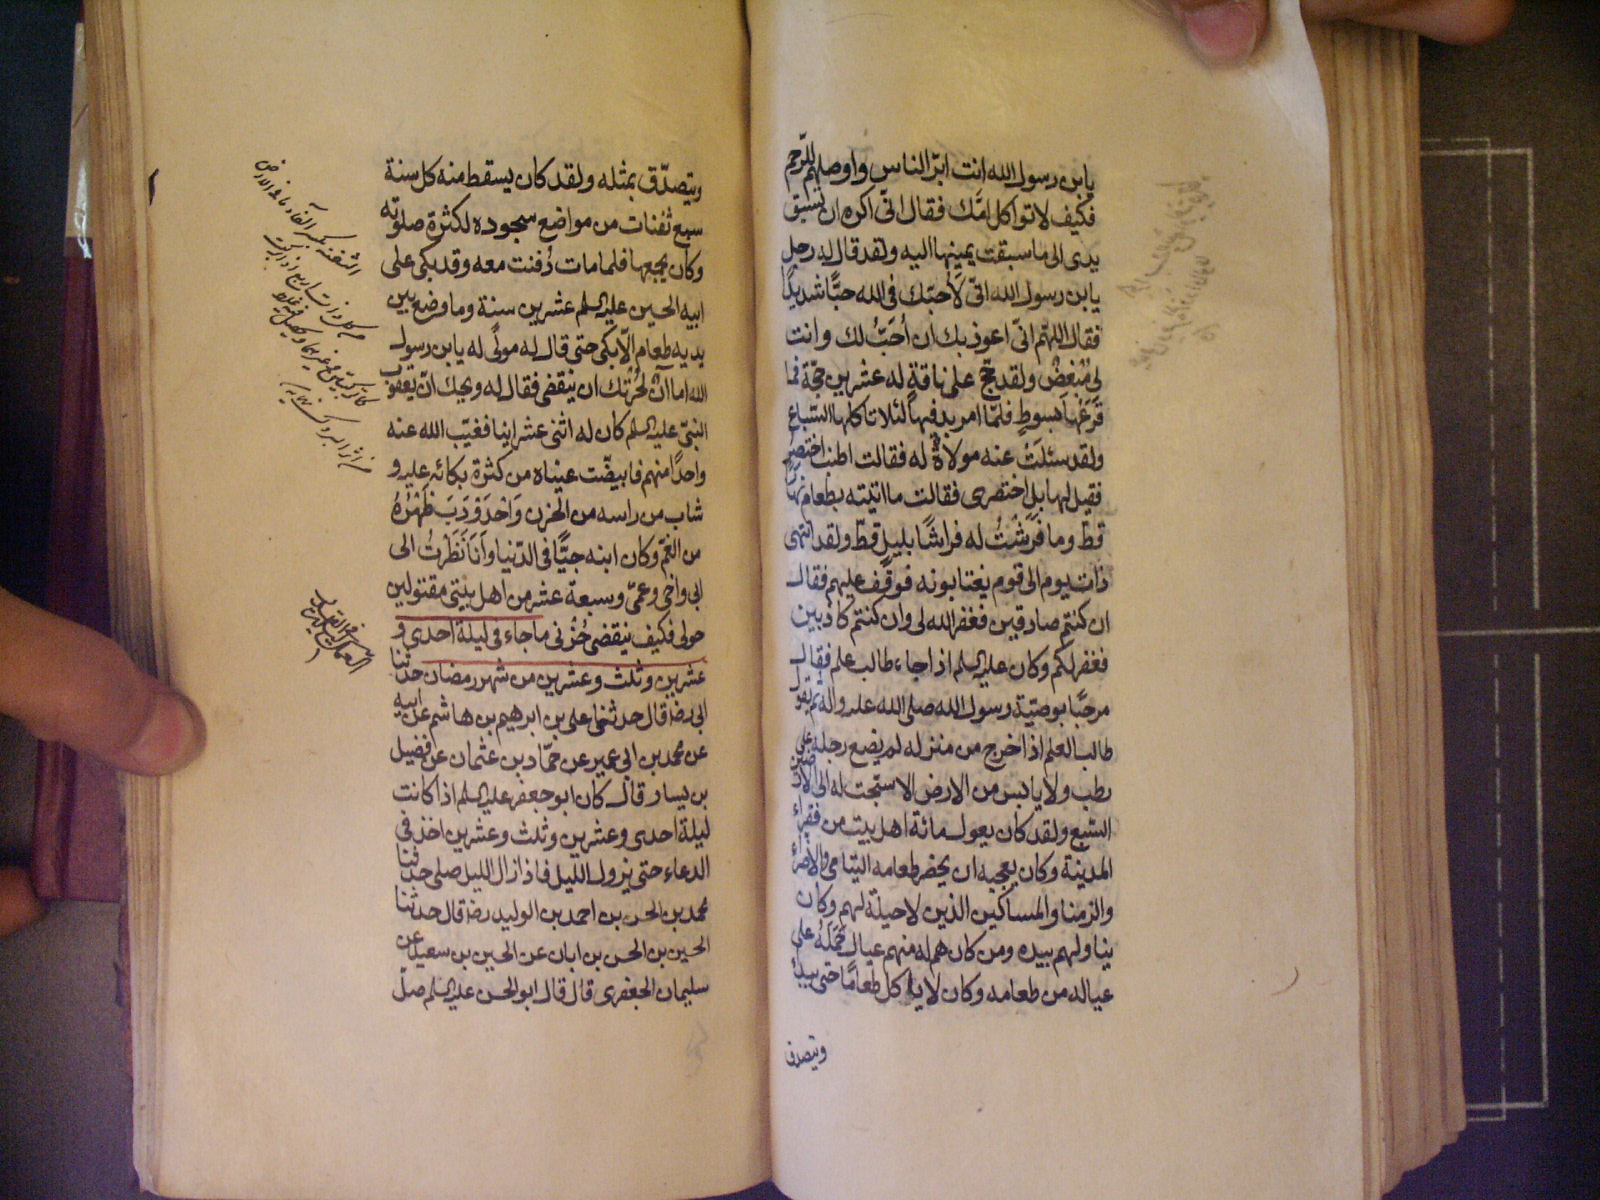 يابن رسول الله انت ابرّ الناس واوصلهم للرّحم
فكيف لا تواكل امّك فقال انّى اكره ان تسبق
يدى الى ما سبقت يمينها اليه ولقد قال له رجل
يابن رسول الله انّى لأحبّك فى الله حبًّا شديدًا
فقال اللهمّ انىّ اعوذ بك ان أُحَبَّ لك وانت
لى مُبْغِضٌ ولقد حجّ على ناقةٍ له عشرين حجّة فما
قَرَعَها بسوطٍ فلمّا امر بدفنها لئلا تاكلها السّباع
ولقد سئلَتْ عنه مولاةٌ له فقالت اطنب او اختصر
فقيل لها بل اختصرى فقالت ما اتيته بطعام نهارًا
قطّ وما فَرَشْتُ له فراشًا بليل قطّ ولقد انتهى
ذات يوم الى قوم يغتابونه فوقف عليهم فقال
ان كنتم صادقين فغفر الله لى وان كنتم كاذبين
فغفر لكم وكان عليه السلم اذا جاء طالب علم فقال
مرحبًا بوصيّة رسول الله صلى الله عليه واله ثم يقول
طالب العلم اذا خرج من منزله لم يضع رجله على
رطب ولا يابس من الارض الا سبّحت له الى الارضين
السّبع ولقد كان يعول مائة اهل بيت من فقراء
المدينة وكان يعجبه ان يحضر طعامه اليتامى والاضراء
والزمنا والمساكين الذين لا حيلة لهم وكان
يناولهم بيده ومن كان هم له منهم عيال حَمَلَهُ على
عياله من طعامه وكان لا ياكل طعامًا حتى يبدأ
ويتصدق
ويتصدّق بمثله ولقد كان يسقط منه كل سنة
سبع ثفنات من مواضع سجوده لكثرة صلوته
وكان يجمعها فلما مات دُفنت معه وقد بكى على
ابيه الحسين عليه السلم عشرين سنة وما وضع بين
يديه طعام الّا بكى حتى قال له مولًى له يابن رسول
الله اما آن لحُزنك ان ينقضى فقال له ويحك انّ يعقوب
النبىّ عليه السلم كان له اثنى عشر ابنا فغيّب الله عنه
واحدًا منهم فابيضّت عيناه من كثرة بكائه عليه و
شاب من راسه من الحزن وَاحْدَوْدَبَ ظَهْرُهُ
من الغمّ وكان ابنه حيًّا فى الدّنيا وَاَنَا نَظَرْتُ الى
ابى واخى وعمّى وسبعة عشر من اهل بيتى مقتولين
حولى فكيف ينقضى حُزْنى ما جاء فى ليلة احدى و
عشرين وثلث وعشرين من شهر رمضان حدثنا
ابى رضه قال حدثنا على بن ابرهيم بن هاشم عن ابيه
عن محمد بن ابى عمير عن حمّاد بن عثمان عن فضيل
بن يسار قال كان ابو جعفر عليه السلم اذا كانت
ليلة احدى وعشرين وثلث وعشرين اخذ فى
الدعاء حتى يزول الليل فاذا زال الليل صلى حدثنا
محمد بن الحسن بن احمد بن الوليد رضه قال حدثنا
الحسين بن الحسن بن ابان عن الحسين بن سعيد عن
سليمان الجعفرى قال قال ابو الحسن عليه السلم صلّ